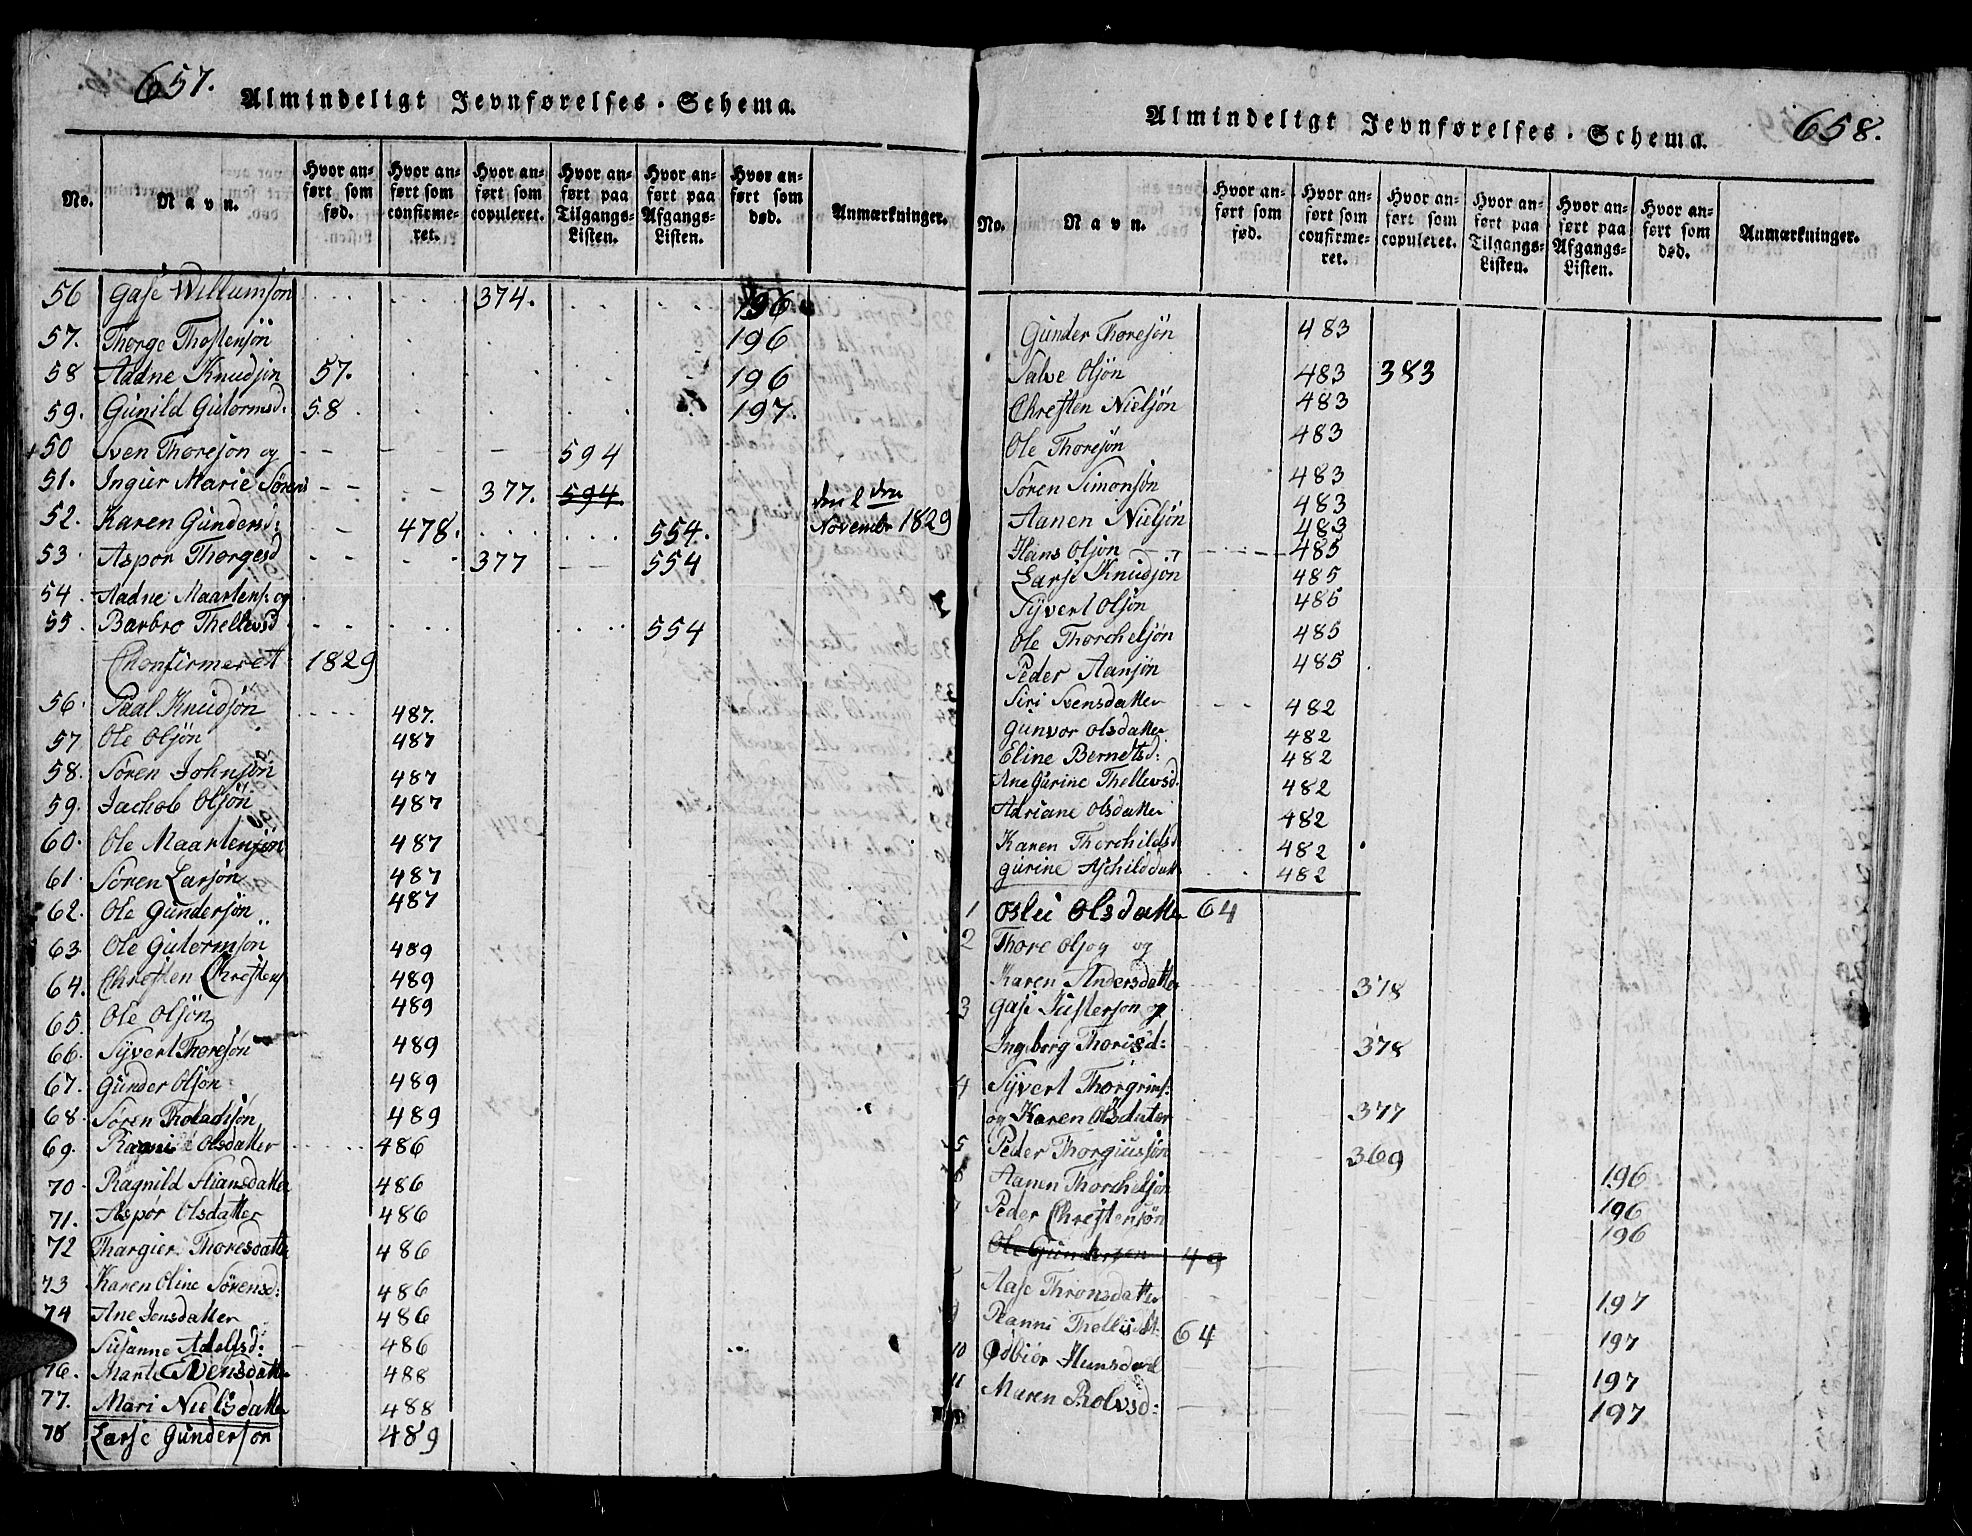 657.
Almindeligt Jevnførelses-Schema.
No. Navn. Hvor anført som fød. Hvor anført som confirmeret. Hvor anført som copuleret. Hvor anført paa Tilgangs-Listen. Hvor anført paa Afgangs-Listen. Hvor anført som død. Anmærkninger.
56 Gase Willumsøn 374. 196
57. Thorge Thostensøn 196
58 Aadne Knudsøn 57. 196
59. Gunild Gutormsd. 58 197.
+50 Sven Thoresøn og 594
51. Ingier Marie Sørens 377. 594 den 2den
52. Karen Gundersd: 478. 554. Novembr 1829
53 Aspor Thorgesd 377 554
54. Aadne Maartens. og
55 Barbro Thellevsd 554
Chonfirmeret 1829
56. Paal Knudsøn 487.
57 Ole Olsøn 487
58. Søren Johnsøn 487
59. Jachob Olsøn 487
60. Ole Maartensøn 487
61. Søren Larsøn 487
62. Ole Gundersøn 487
63. Ole Gutormsøn 489
64. Chresten Chrestens 489
65. Ole Olsøn 489
66. Syvert Thoresøn 489
67. Gunder Olsøn 489
68. Søren Tholachsøn 489
69. Ragni Olsdatter 486
70 Ragnild Hansdatter 486
71. Aspor Olsdatter 486
72 Thargier Thoresdatter 486
73 Karen Oline Sørensd: 486
74 Ane Jensdatter 486
Susanne Adolfsd: 486
76. Marte Svensdatter 488
77. Mari Nielsdatter 488
78 Larse Gundersøn 489
658.
Almindeligt Jevnførelses-Schema.
No. Navn. Hvor anført som fød. Hvor anført som confirmeret. Hvor anført som copuleret. Hvor anført paa Tilgangs-Listen. Hvor anført paa Afgangs-Listen. Hvor anført som død. Anmærkninger.
Gunder Thoresøn 483
Salve Olsøn 483 383
Chresten Nielsøn 483
Ole Thoresøn 483
Søren Simonsøn 483
Aanen Nielsøn 483
483
Hans Olsøn 485
Larse Knudsøn 485
Syvert Olsøn 485
Ole Thorchelsøn 485
Peder Aansøn 485
Siri Svensdatter 482
Gunvor Olsdatter 482
Eline Berntsd: 482
Ane Gurine Thellevsd. 482
Adriane Olsdatter 482
Karen Thorchildsd 482
Gurine Aschildsdatt 482
1 Oslei Olsdatter 64
2 Thore Olsøn og
Karen Andersdatter 378
3 Gase Justersøn og
Ingborg Thorisd: 378
4 Syvert Thorgrims:
og Karen Olsdater 377
5 Peder Thorgiussøn 369
6 Aanen Thorchelsøn 196
7 Peder Chrestensøn 196
196
Ole Gundersen 49
Aase Thronsdatter 197
9 Ranni Thellisdt: 64 197
10 Ødbiør Hansdaat 197
11 Maren Rolvsd: 197